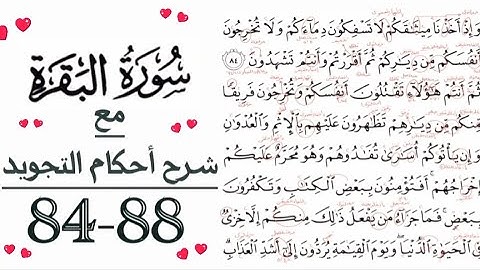 سُورَةُ البَقَرَةِ
مع
شرح أحكام التجويد
84-88
وَإِذْ أَخَذْنَا مِيثَٰقَكُمْ لَا تَسْفِكُونَ دِمَآءَكُمْ وَلَا تُخْرِجُونَ
أَنفُسَكُم مِّن دِيَٰرِكُمْ ثُمَّ أَقْرَرْتُمْ وَأَنتُمْ تَشْهَدُونَ ٨٤
ثُمَّ أَنتُمْ هَٰٓؤُلَآءِ تَقْتُلُونَ أَنفُسَكُمْ وَتُخْرِجُونَ فَرِيقًا
مِّنكُم مِّن دِيَٰرِهِمْ تَظَٰهَرُونَ عَلَيْهِم بِٱلْإِثْمِ وَٱلْعُدْوَٰنِ
وَإِن يَأْتُوكُمْ أُسَٰرَىٰ تُفَٰدُوهُمْ وَهُوَ مُحَرَّمٌ عَلَيْكُمْ
إِخْرَاجُهُمْ أَفَتُؤْمِنُونَ بِبَعْضِ ٱلْكِتَٰبِ وَتَكْفُرُونَ
بِبَعْضٍ فَمَا جَزَآءُ مَن يَفْعَلُ ذَٰلِكَ مِنكُمْ إِلَّا خِزْىٌ
فِى ٱلْحَيَوٰةِ ٱلدُّنْيَا وَيَوْمَ ٱلْقِيَٰمَةِ يُرَدُّونَ إِلَىٰٓ أَشَدِّ ٱلْعَذَابِ